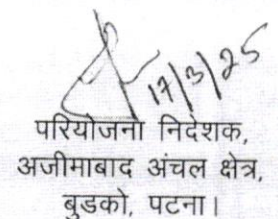 17/3/25
परियोजना निदेशक,
अजीमाबाद अंचल क्षेत्र,
बुडको, पटना।